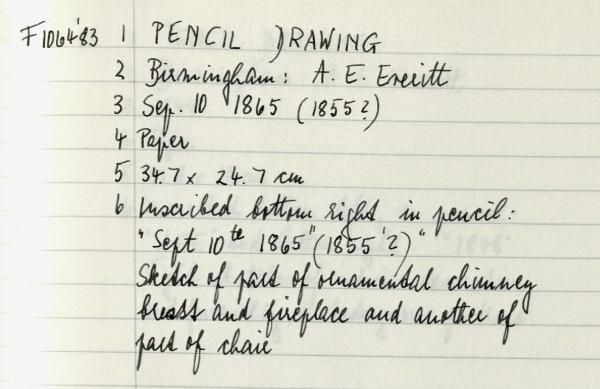 F1064'83 1 PENCIL DRAWING
2 Birmingham: A. E. Everitt
3 Sep. 10 1865 (1855?)
4 Paper
5 34.7 x 24.7 cm
6 Inscribed bottom right in pencil:
"Sept 10te 1865" (1855'?)"
Sketch of part of ornamental chimney
breast and fireplace and another of
part of chair